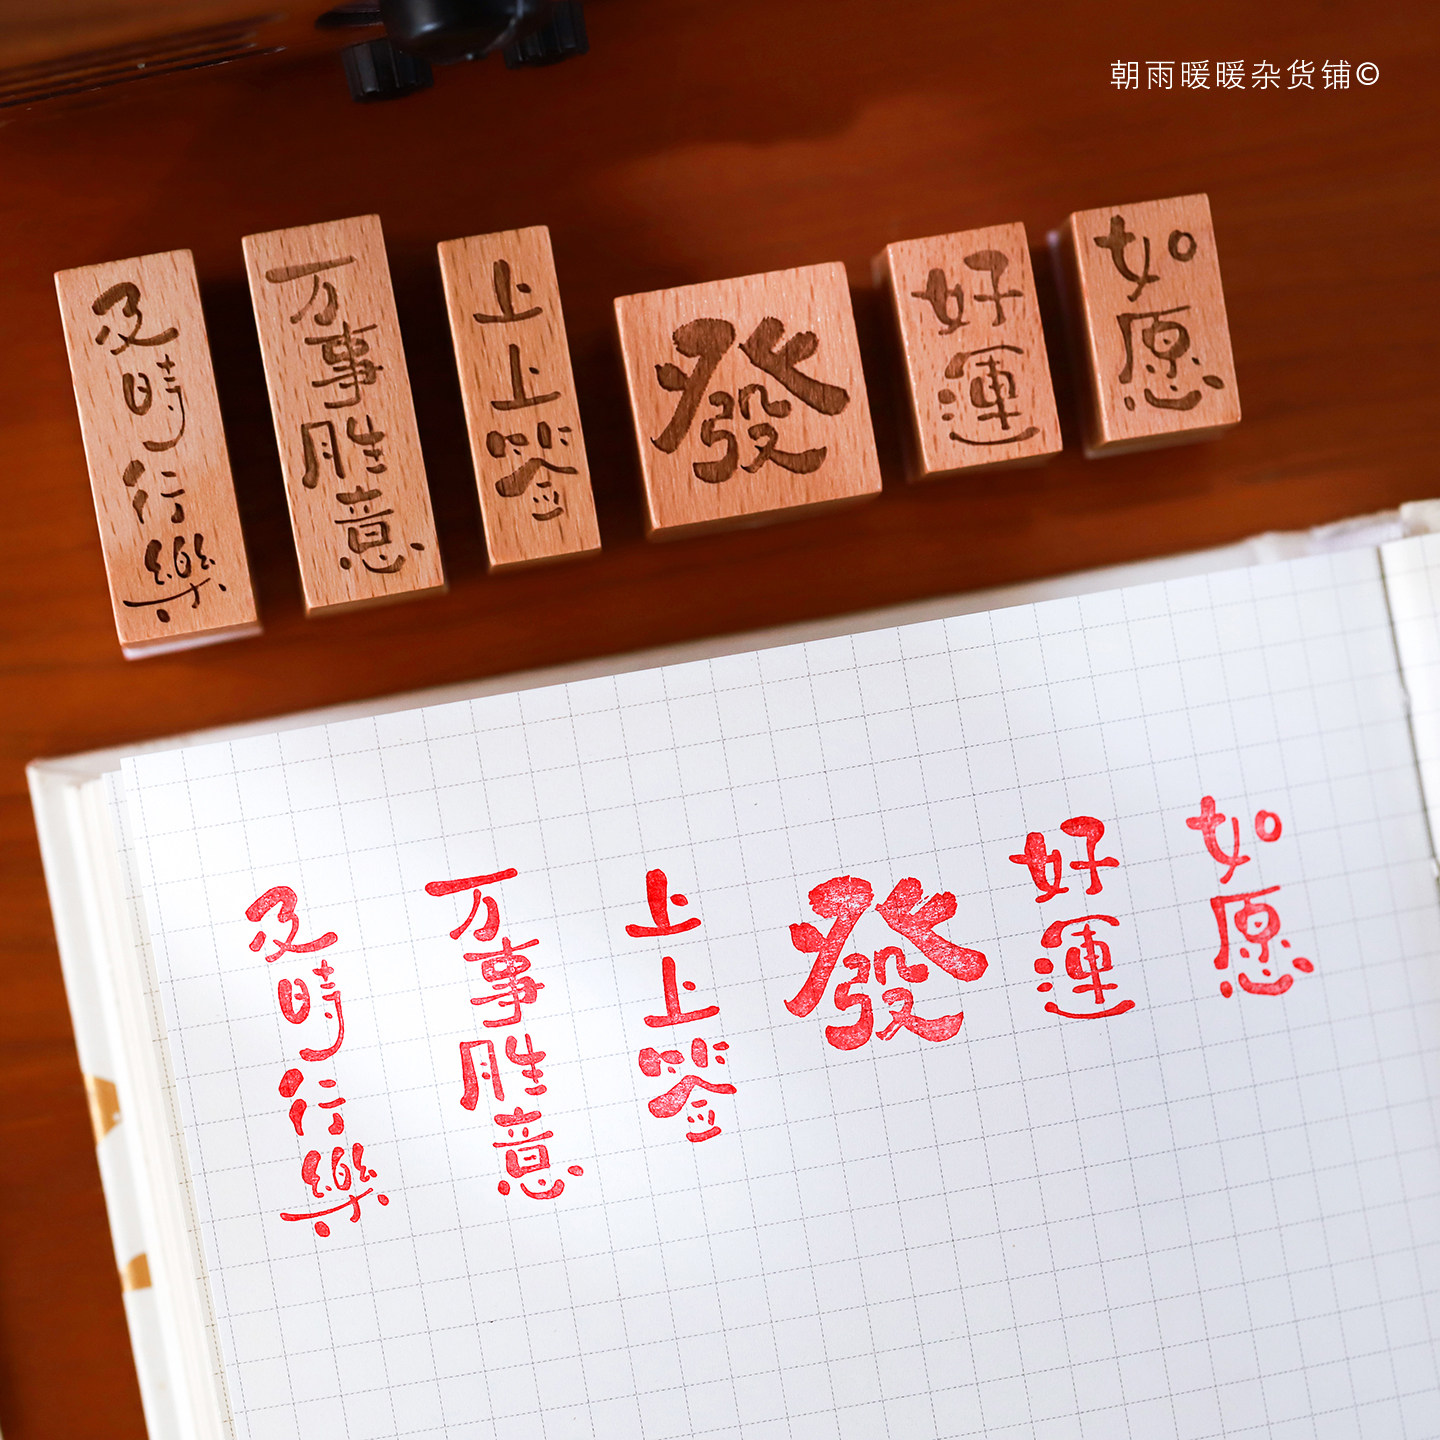 朝雨暖暖杂货铺©
及時行樂
万事胜意
上上签
發
好運
如愿
及時行樂
万事胜意
上上签
發
好運
如愿